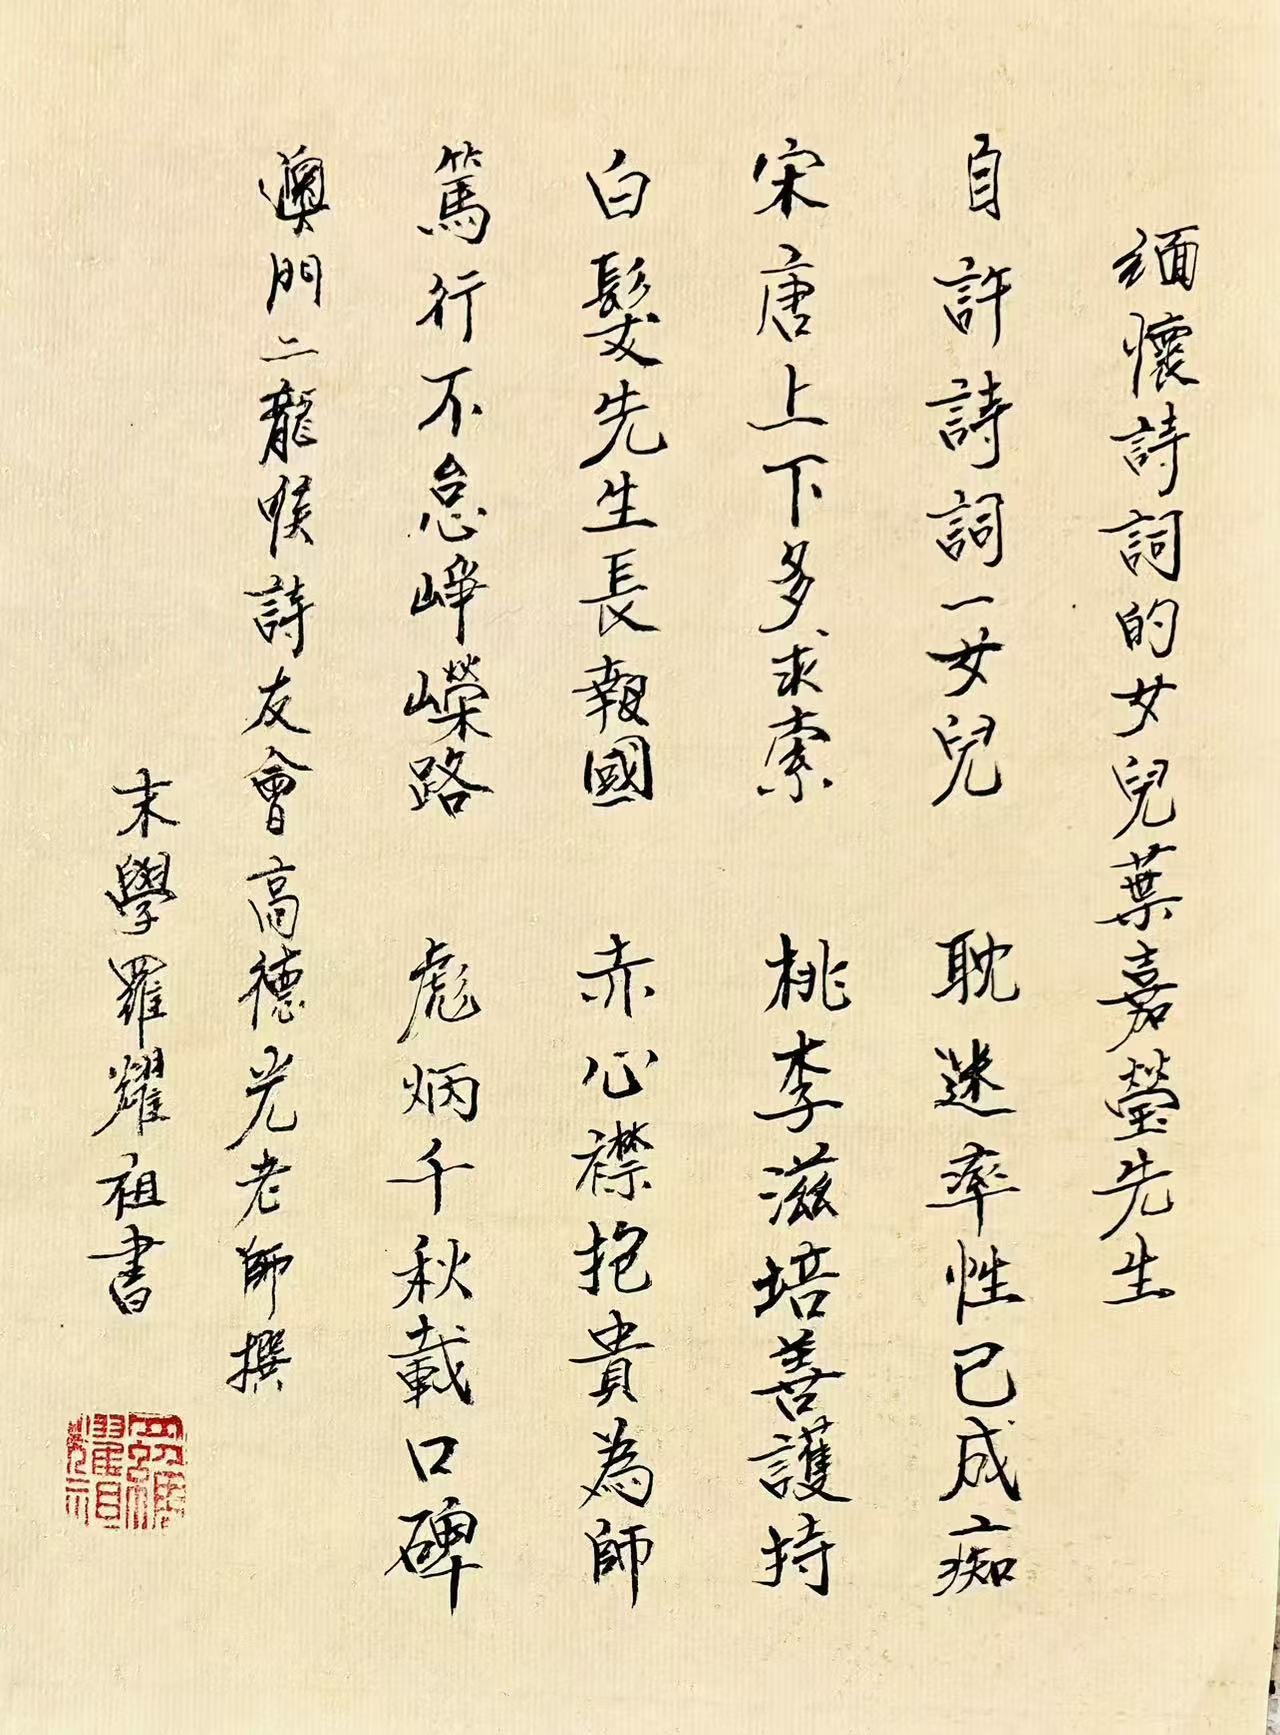 緬懷詩詞的女兒葉嘉瑩先生
自許詩詞一女兒 耽迷率性已成痴
宋唐上下多求索 桃李滋培善護持
白髮先生長報國 赤心襟抱貴為師
篤行不怠崢嶸路 彪炳千秋載口碑
澳門二龍喉詩友會高德光老師撰
末學羅耀祖書
羅耀祖